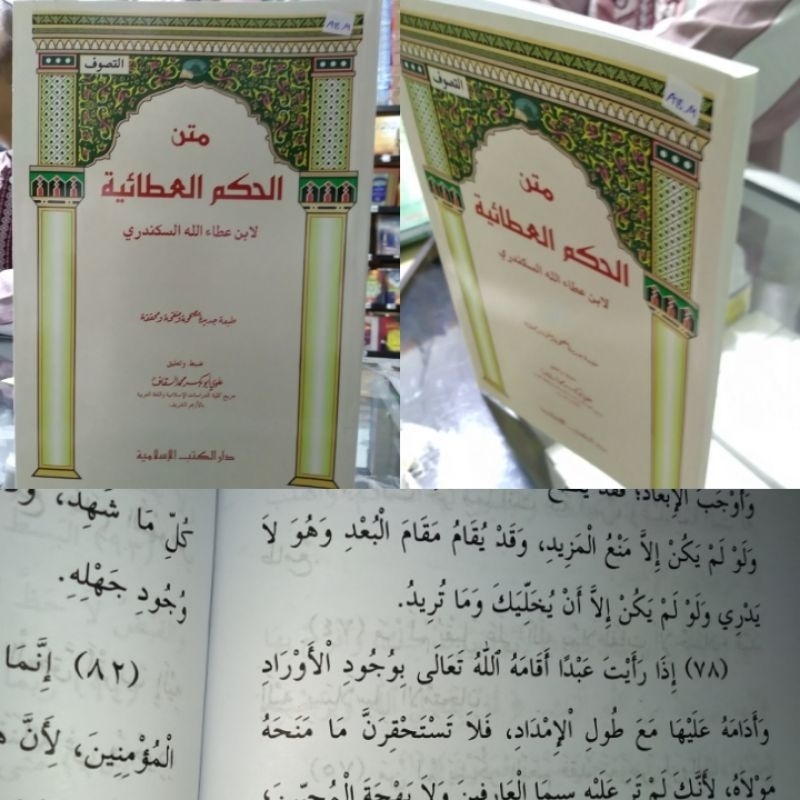 التصوف
متن
الحكم العطائية
لابن عطاء الله السكندري
ضبط وتعليق
علوي أبو بكر محمد السقاف
خريج كلية الدراسات الإسلامية واللغة العربية
بالأزهر الشريف
دار الكتب الإسلامية
التصوف
متن
الحكم العطائية
لابن عطاء الله السكندري
وَأَوْجَبَ الْإِبْعَادَ؛ فَقَدْ يَقْطَعُ
وَلَوْ لَمْ يَكُنْ إِلَّا مَنْعُ الْمَزِيدِ، وَقَدْ يُقَامُ مَقَامَ الْبُعْدِ وَهُوَ لَا
يَدْرِي وَلَوْ لَمْ يَكُنْ إِلَّا أَنْ يُخَلِّيَكَ وَمَا تُرِيدُ.
(٧٨) إِذَا رَأَيْتَ عَبْدًا أَقَامَهُ ٱللهُ تَعَالَى بِوُجُودِ الْأَوْرَادِ
وَأَدَامَهُ عَلَيْهَا مَعَ طُولِ الْإِمْدَادِ، فَلَا تَسْتَحْقِرَنَّ مَا مَنَحَهُ
مَوْلَاهُ، لِأَنَّكَ لَمْ تَرَ عَلَيْهِ سِيمَا الْعَارِفِينَ وَلَا بَهْجَةَ الْمُحِبِّينَ،
كُلِّ مَا شَهِدَ،
وُجُودِ جَهْلِهِ.
(٨٢) إِنَّمَا
الْمُؤْمِنِينَ، لِأَنَّ